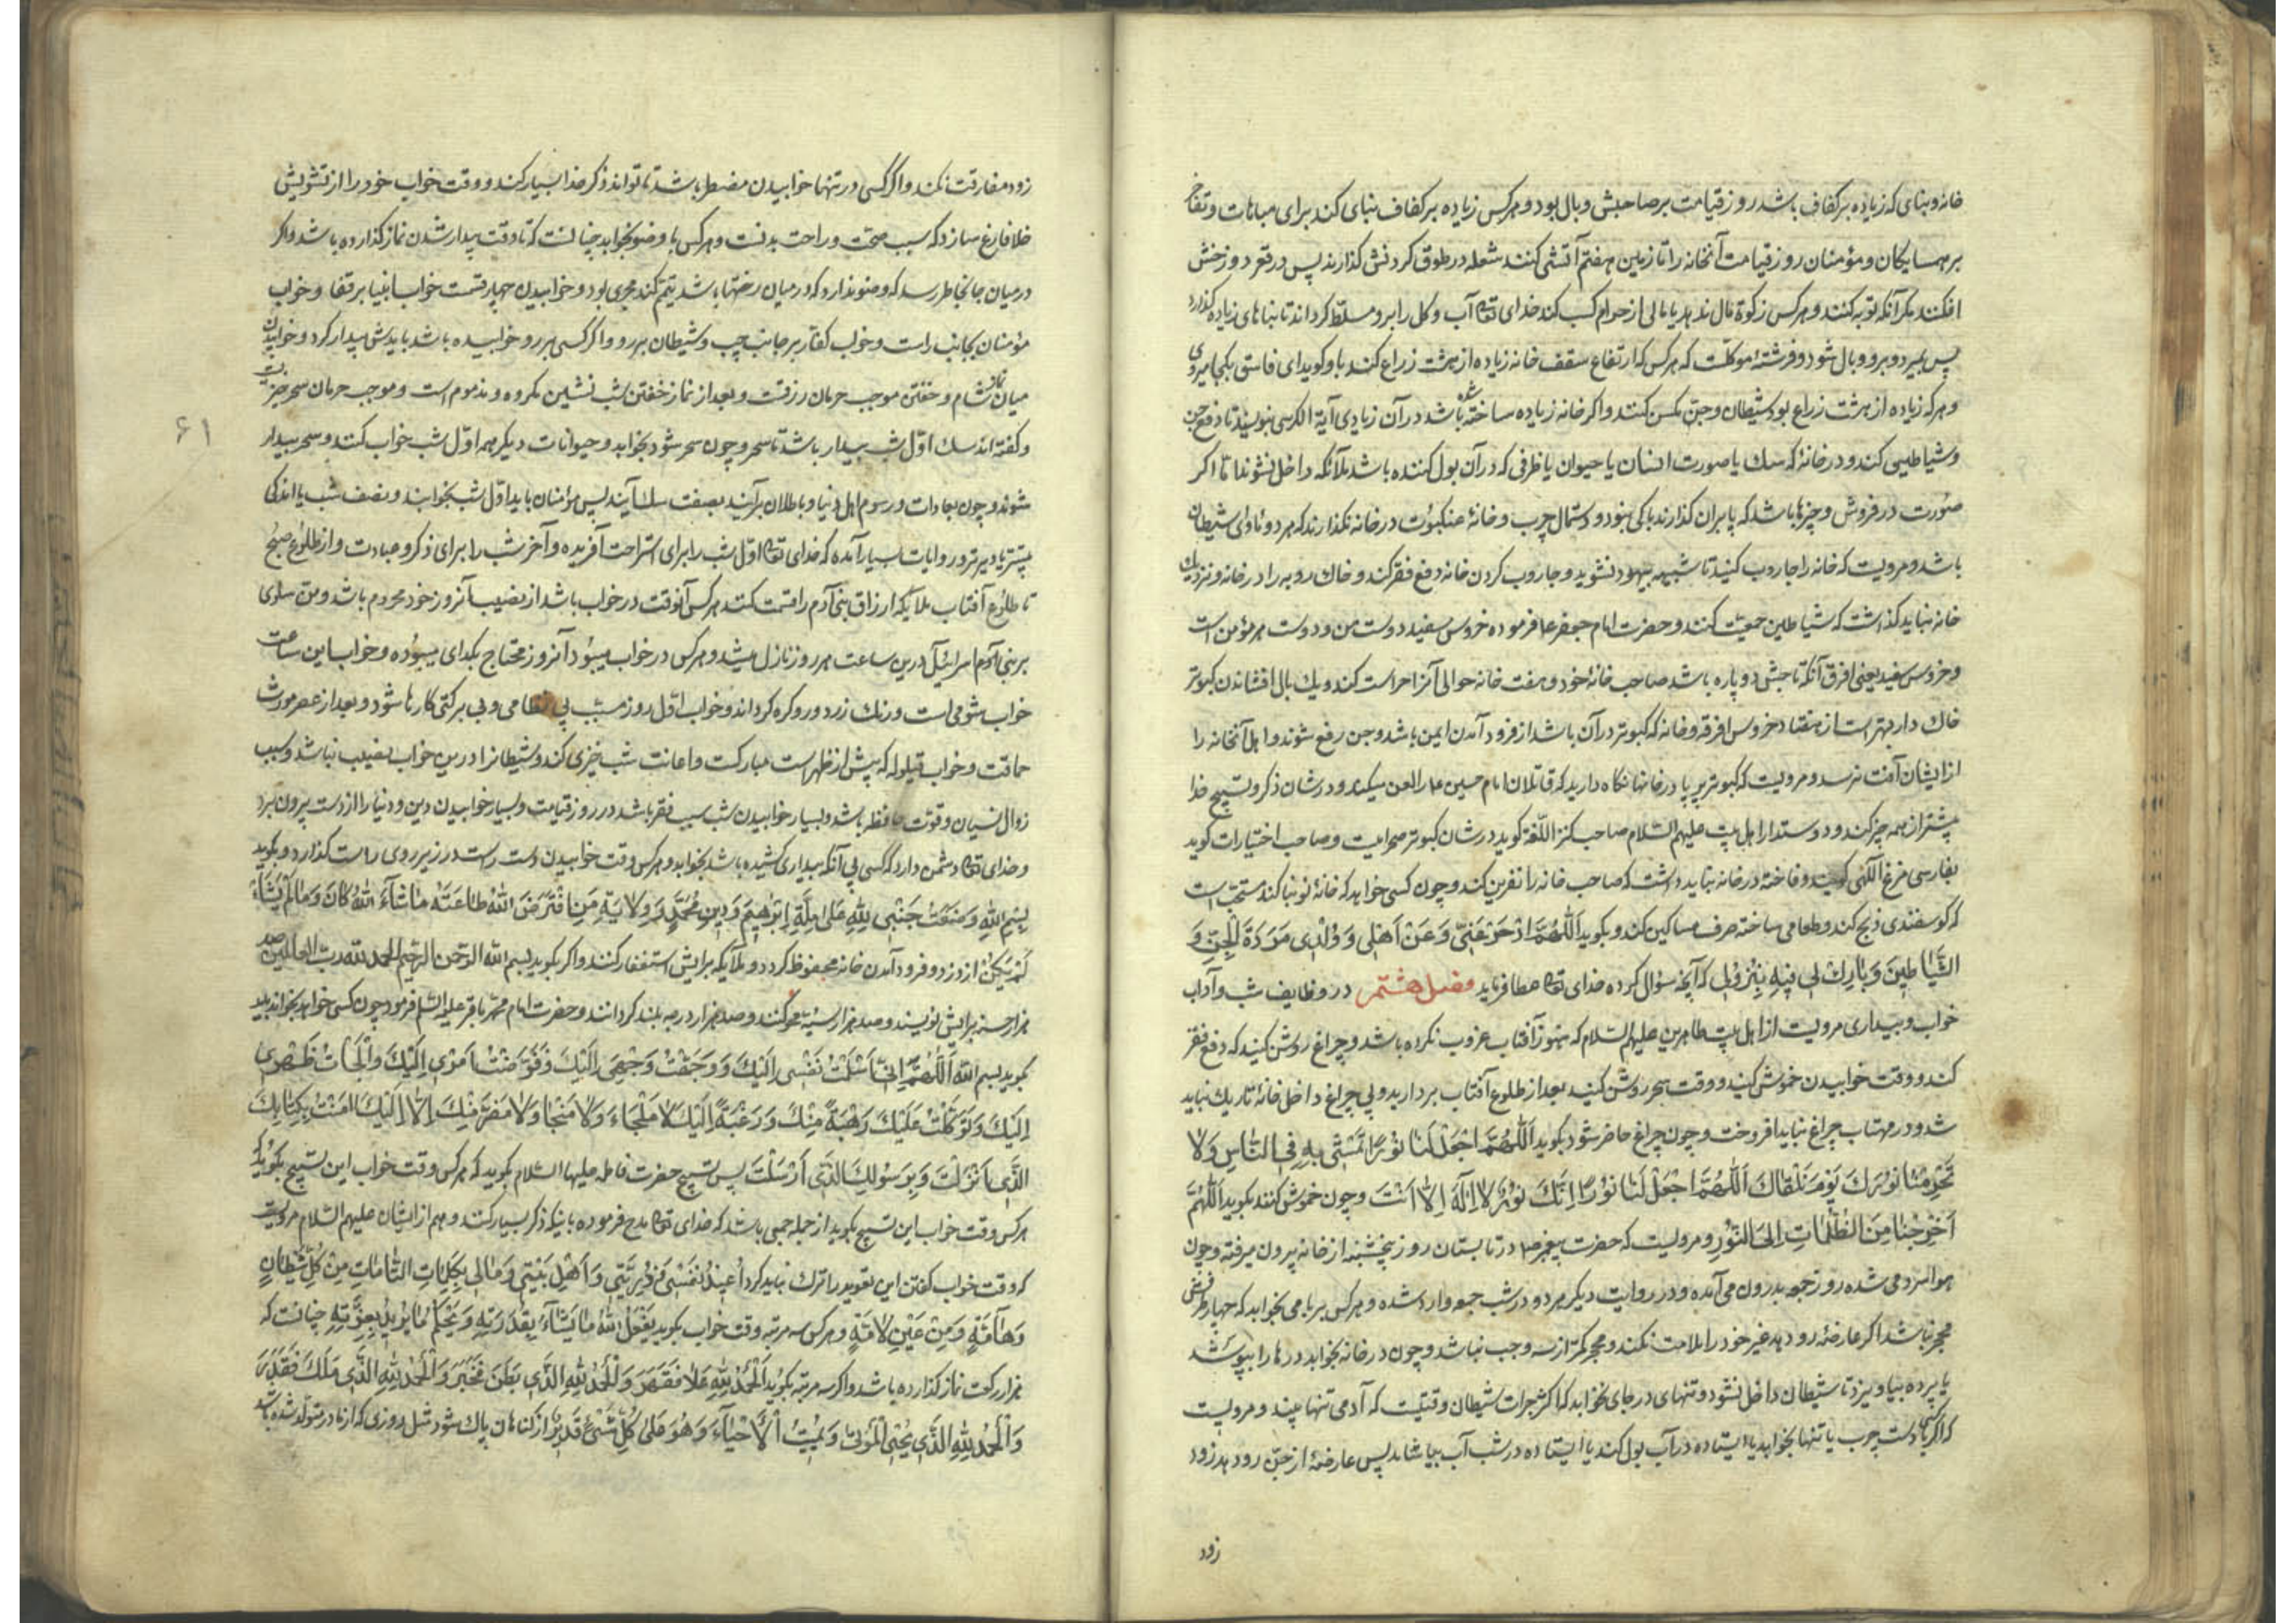 خانه و بنای که زیاده بر کفاف باشد روز قیامت بر صاحبش وبال بود و هر کس زیاده بر کفاف بنای کند برای مباهات و تفاخر
بر همسایکان و مؤمنان روز قیامت آنخانه را تا زمین هفتم آتشی کنند شعله در طوق کردنش کذارند پس در قعر دوزخش
افکنند مکر آنکه توبه کنند و هر کس زکوة مال ندهد یا مالی از حرام کسب کند خدای تعالی آب و کل را برو مسلّط کرداند تا بنا های زیاده کذارد
پس بمیرد و برو وبال شود و فرشتهٔ موکلست که هر کس که ارتفاع سقف خانه زیاده از هشت زراع کند باو کوید ای فاسق بکجا میروی
و هر که زیاده از هشت زراع بود شیطان و جن مسکن کنند و اکر خانه زیاده ساخته شده باشد در آن زیادی آیة الکرسی بنویسند تا دفع جن
و شیاطین کند و در خانهٔ که سک یا صورت انسان یا حیوان یا ظرفی که در آن بول کننده باشد ملآئکه داخل نشوند اما اکر
صورت در فروش و چیزها باشد که پا بران کذارند باکی نبود و دستمال چرب و خانهٔ عنکبوت در خانه نکذارند که هر دو مأوای شیطان
باشد و مرویست که خانه را جاروب کنید تا شبیه بیهود نشوید و جاروب کردن خانه دفع فقر کند و خاک روبه را در خانه و نزدیک
خانه نباید کذاشت که شیاطین جمعیّت کنند و حضرت امام جعفر ع فرموده خروس سفید دوست من و دوست هر مؤمن است
و خروس سفید یعنی افرق آنکه تاجش دو پاره باشد صاحب خانهٔ خود و هفت خانه حوالی آنرا حراست کند و یک بال افشاندن کبوتر
خاک دار بهتر است از هفتاد خروس افرق و خانه که کبوتر در آن باشد از فرود آمدن ایمن باشد و جن رفع شوند و اهل آنخانه را
از ایشان آفت نرسد و مرویست که کبوتر پر پا در خانها نکاه دارید که قاتلان امام حسین ع را لعن میکند و در شان ذکر و تسبیح خدا
پیشتر از همه چیز کند و دوستدار اهل بیت علیهم السّلام صاحب کنز اللّغة کوید در شان کبوتر صحرائیست و صاحب اختیارات کوید
بفارسی مرغ آلهی کویند و فاخته در خانه نباید داشت که صاحب خانه را نفرین کند و چون کسی خواهد که خانهٔ نو بنا کند مستحب است
که کوسفندی ذبح کند و طعامی ساخته صرف مساکین کند و بکوید اَللّهُمَّ ادْحَرْ عَنِّی وَ عَنْ اَهْلی وَ وُلْدِی مَرَدَةَ الْجِنِّ وَ
الشَّیاطینَ وَ بارِكْ لی فیهِ بِنُزُولی که آنچه سؤال کرده خدای تعالی عطا فرماید فصل هشتم در وظایف شب و آداب
خواب و بیداری مرویست از اهل بیت طاهرین علیهم السّلام که هنوز آفتاب غروب نکرده باشد و چراغ روشن کنید که دفع فقر
کند و وقت خوابیدن خموش کنید و وقت سحر روشن کنید بعد از طلوع آفتاب بردارید و بی چراغ داخل خانهٔ تاریک نباید
شد و در مهتاب چراغ نباید افروخت و چون چراغ حاضر شود بکوید اَللّهُمَّ اجْعَلْ لَنا نُورًا نَمْشی بِهِ فِی النّاسِ وَ لا
تَحْرِمْنا نُورَكَ یَوْمَ نَلْقاكَ اَللّهُمَّ اجْعَلْ لَنا نُورًا اِنَّكَ نُورٌ لا اِلهَ اِلّا اَنْتَ و چون خموش کنند بکوید اَللّهُمَّ
اَخْرِجْنا مِنَ الظُّلُماتِ اِلَی النُّورِ و مرویست که حضرت پیغمبر ص در تابستان روز پنجشنبه از خانه بیرون میرفته و چون
هوا سرد می شده روز جمعه بدرون می آمده و در روایت دیکر هر دو در شب جمعه وارد شده و هر کس بر بامی بخوابد که چهار طرفش
محجر نباشد اکر عارضهٔ رو دهد غیر خود را ملامت نکند و محجر کمتر از سه وجب نباشد و چون در خانه بخوابد درها را بپوشد
یا پرده بیاویزد تا شیطان داخل نشود و تنهای در جای نخوابد که اکثر جرات شیطان وقتیست که آدمی تنها بیند و مرویست
که اکر کسی با دست چرب یا تنها بخوابد یا ایستاده در آب بول کند یا ایستاده در شب آب بیاشامد پس عارضهٔ از جن رو دهد زود
زود
زود مفارقت نکند و اکر کسی در تنها خوابیدن مضطر باشد تا تواند ذکر خدا بسیار کند و وقت خواب خود را از تشویش
خلا فارغ سازد که سبب صحّت و راحت بدنست و هر کس با وضو بخوابد چنانست که تا وقت بیدار شدن نماز کذارده باشد و اکر
در میان جا بخاطر رسد که وضو ندارد که در میان رختها باشد تیمّم کند مجزی بود و خوابیدن چهار قسمت خواب انبیا بر قفا و خواب
مؤمنان بجانب راست و خواب کفّار بر جانب چپ و شیطان بر رو و اکر کسی بر رو خوابیده باشد بایدش بیدار کرد و خوابیدن
میان نماز شام و خفتن موجب حرمان رزقست و بعد از نماز خفتن شب نشین مکروه و مذموم است و موجب حرمان سحر خیزیست
و کفته اند سک اوّل شب بیدار باشد تا سحر و چون سحر شود بخوابد و حیوانات دیکر همه اوّل شب خواب کنند و سحر بیدار
شوند و چون بعادات و رسوم اهل دنیا و باطلان برآیند بصفت سک آیند پس مؤمنان باید اوّل شب بخوابند و نصف شب یا اندکی
پیشتر یا دیرتر و در روایات بسیار آمده که خدای تعالی اوّل شب را برای استراحت آفریده و آخر شب را برای ذکر و عبادت و از طلوع صبح
تا طلوع آفتاب ملایکه ارزاق بنی آدم را قسمت کنند هر کس آنوقت در خواب باشد از نصیب آنروز خود محروم باشد و من سلوی
بر بنی اسرائیل درین ساعت هر روز نازل میشد و هر کس در خواب میبود آنروز محتاج بکدای میبوده و خواب این ساعت
خواب شومی است و رنک زرد و رو کره کرداند و خواب اوّل روز مسبّب بی نظامی و بی برکتی کارها شود و بعد از عصر مورث
حماقت و خواب قیلوله که پیش از ظهر است مبارکست و اعانت شب خیزی کند و شیطانرا درین خواب نصیب نباشد و سبب
زوال نسیان و قوّت حافظه باشد و بسیار خوابیدن شب سبب فقر باشد در روز قیامت و بسیار خوابیدن دین و دنیا را از دست بیرون برد
و خدای تعالی دشمن دارد که کسی بی آنکه بیداری کشیده باشد بخوابد و هر کس وقت خوابیدن دست راست در زیر روی راست کذارد و بکوید
بِسْمِ اللهِ وَضَعْتُ جَنْبی لِلّهِ عَلی مِلَّةِ اِبْرهیمَ وَ دینِ مُحَمَّدٍ وَ وِلایَةِ مَنِ افْتَرَضَ اللهُ طاعَتَهُ ما شآءَ اللهُ كانَ وَ ما لَمْ یَشَأْ
لَمْ یَكُنْ از دزد و فرود آمدن خانه محفوظ کردد و ملآیکه برایش استغفار کنند و اکر بکوید بسم الله الرّحمن الرّحیم الحمد لله ربّ العالمین صد
هزار حسنه برایش نویسند و صد هزار سیّئه محو کنند و صد هزار درجه بلند کردانند و حضرت امام محمّد باقر علیه السّلم فرمود چون کسی خواهد بخوابد باید
بکوید بسم الله اَللّهُمَّ اِنّی اَسْلَمْتُ نَفْسی اِلَیْكَ وَ وَجَّهْتُ وَجْهی اِلَیْكَ وَ فَوَّضْتُ اَمْری اِلَیْكَ وَ اَلْجَأْتُ ظَهْری
اِلَیْكَ وَ تَوَكَّلْتُ عَلَیْكَ رَهْبَةً مِنْكَ وَ رَغْبَةً اِلَیْكَ لا مَلْجَاءَ وَ لا مَنْجا وَ لا مَفَرَّ مِنْكَ اِلّا اِلَیْكَ امَنْتُ بِكِتابِكَ
الَّذی اَنْزَلْتَ وَ بِرَسُولِكَ الَّذی اَرْسَلْتَ پس تسبیح حضرت فاطمه علیها السّلام بکوید که هر کس وقت خواب این تسبیح بکوید که
هر کس وقت خواب این تسبیح بکوید از جمله جمعی باشد که خدای تعالی مدح فرموده باینکه ذکر بسیار کنند و هم از ایشان علیهم السّلام مرویست
که وقت خواب کفتن این تعوید را ترک نباید کرد اُعیذُ نَفْسی وَ ذُرِّیَّتی وَ اَهْلَ بَیْتی وَ مالی بِكَلِماتِ التّامّاتِ مِنْ كُلِّ شَیْطانٍ
وَ هآمَّةٍ وَ مِنْ عَیْنٍ لامَّةٍ و هر کس سه مرتبه وقت خواب بکوید یَفْعَلُ اللهُ ما یَشآءُ بِقُدْرَتِهِ وَ یَحْكُمُ ما یُریدُ بِعِزَّتِهِ چنانست که
هزار رکعت نماز کذارده باشد و اکر سه مرتبه بکوید اَلْحَمْدُ لِلّهِ عَلا فَقَهَرَ وَ الْحَمْدُ لِلّهِ الَّذی بَطَنَ فَخَبَرَ وَ الْحَمْدُ لِلّهِ الَّذی مَلَكَ فَقَدَرَ
وَ الْحَمْدُ لِلّهِ الَّذی یُحْیِی الْمَوْتی وَ یُمیتُ الْاَحْیآءَ وَ هُوَ عَلی كُلِّ شَیْءٍ قَدیرٌ از کناهان پاک شود مثل روزی که از مادر متولّد شده باشد
۶۱